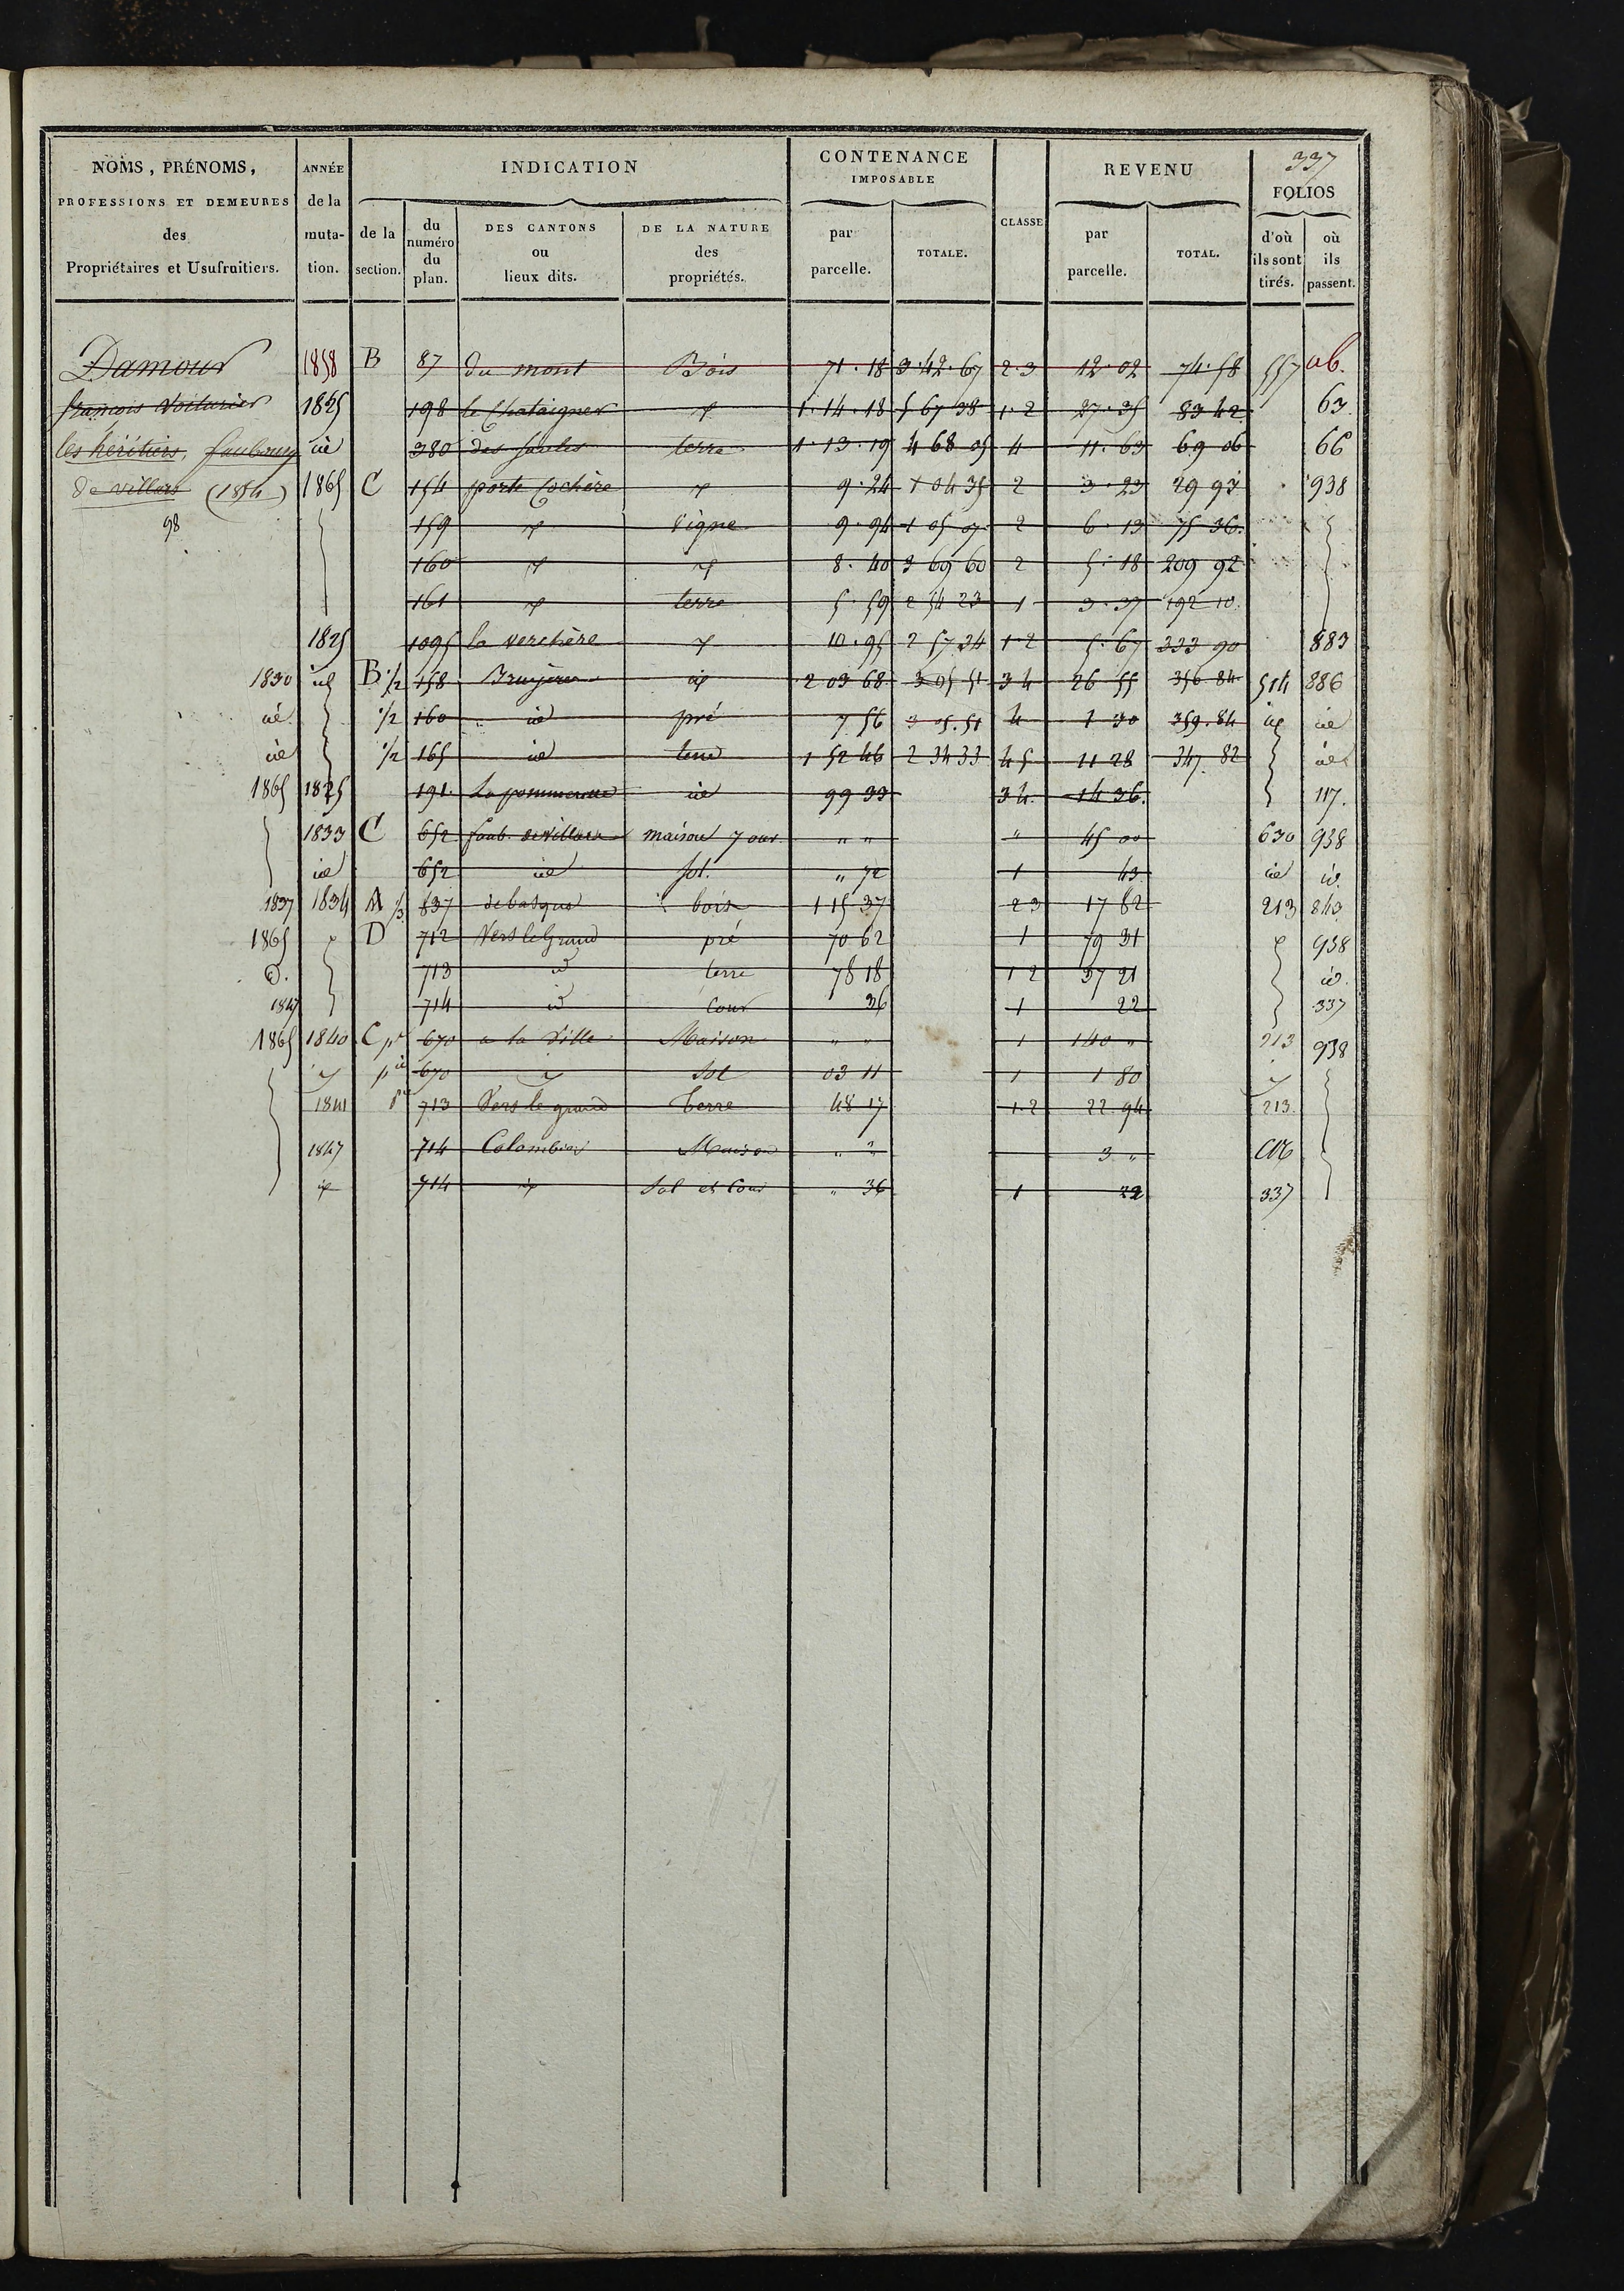 337
NOMS, PRÉNOMS,
PROFESSIONS ET DEMEURES
des
Propriétaires et Usufruitiers.
ANNÉE
de la
muta-
tion.
INDICATION
de la
section.
du
numéro
du
plan.
DES CANTONS
ou
lieux dits.
DE LA NATURE
des
propriétés.
CONTENANCE
IMPOSABLE
par
parcelle.
TOTALE.
CLASSE
REVENU
par
parcelle.
TOTAL.
FOLIOS
d'où
ils sont
tirés.
où
ils
passent.
Damour 1858 B 87 du mont Bois 71.18 3.42.67 2.3 12.02 74.58 557
françois Voiturier 1825 198 le Chataigner 1.14.18 5 67 38 1.2 27.35 83 42 63
les héritiers, faubourg id 380 des saules terre 1.13.19 4 68 05 4 11.63 69 06 66
De villars (1854) 1865 C 154 porte Cochère 9.24 1 04 35 2 3.23 29 93 938
98 159 vigne 9.94 1 05 07 2 6.13 75 36
160 8.40 3 69 60 2 5.18 209 92
161 terre 5.59 2 54 23 1 3.37 192 10
1825 1095 la verchère 10.95 2 57 34 1.2 5.67 333 90 883
1830 id B 1/2 158 Bruyères id 2 03 68 3 05 51 3 4 26 55 356 84 514 886
id 1/2 160 id pré 7 56 3 05.51 4 1 30 359.84 id id
id 1/2 165 id terre 1 52 46 2 34 33 4 5 11 28 347.82 id
1865 1825 191 La pommeraie id 99 33 3 4 14 36 117.
1833 C 652 faub. de villars maison 7 ouv. " " " 45 00 630 938
id 652 id sol. " 72 1 43 id id
1837 1834 A 1/3 837 bois 1 15 37 2 3 17 82 213 843
1865 D 712 Vers le Grand pré 70 62 1 79 31 938
id. 713 id terre 78 18 1 2 37 21 id.
1847 714 id cour 36 1 22 337
1865 1840 C pie 670 a la Ville Maison " " 1 140 " 213 938
pie 670 Sol 03 11 1 1 80
1841 pie 713 Vers le grand Terre 48 17 1.2 22 94 213
1847 714 Colombier Maison " " 3 "
id 714 id Sol et Cour " 36 1 22 337